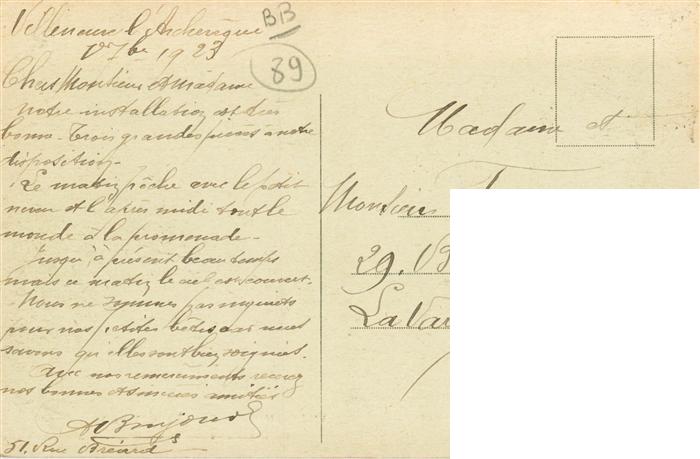 Villeneuve l'Archevêque
1er 7bre 1923
BB
89
Chers Monsieur et Madame
notre installation est très
bonne - Trois grandes pièces à notre
disposition -
Le matin pêche avec le petit
neveu et l'après midi tout le
monde à la promenade -
Jusqu'à présent beau temps
mais ce matin le ciel est couvert -
Nous ne sommes pas inquiets
pour nos petites bêtes car nous
savons qu'elles sont bien soignées.
Avec nos remerciements recevez
nos bonnes et sincères amitiés
51. Rue Bréard
Madame et
Monsieur
29.
La Var